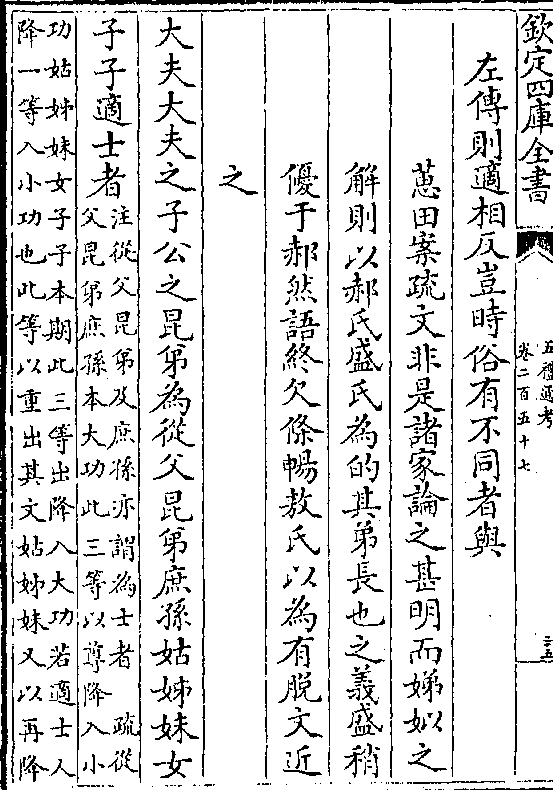 欽定四庫全書
五禮通考
卷二百五十七
左傳則適相反豈時俗有不同者與
蕙田案疏文非是諸家論之甚明而娣姒之
解則以郝氏盛氏為的其弟長也之義盛稍
優于郝然語終欠條暢敖氏以為有脫文近
之
大夫大夫之子公之昆弟為從父昆弟庶孫姑姊妹女
子子適士者
注從父昆弟及庶孫亦謂為士者　疏從
父昆弟庶孫本大功此三等以尊降入小
功姑姊妹女子子本期此三等出降入大功若適士人
降一等入小功也此等以重出其文姑姊妹又以再降